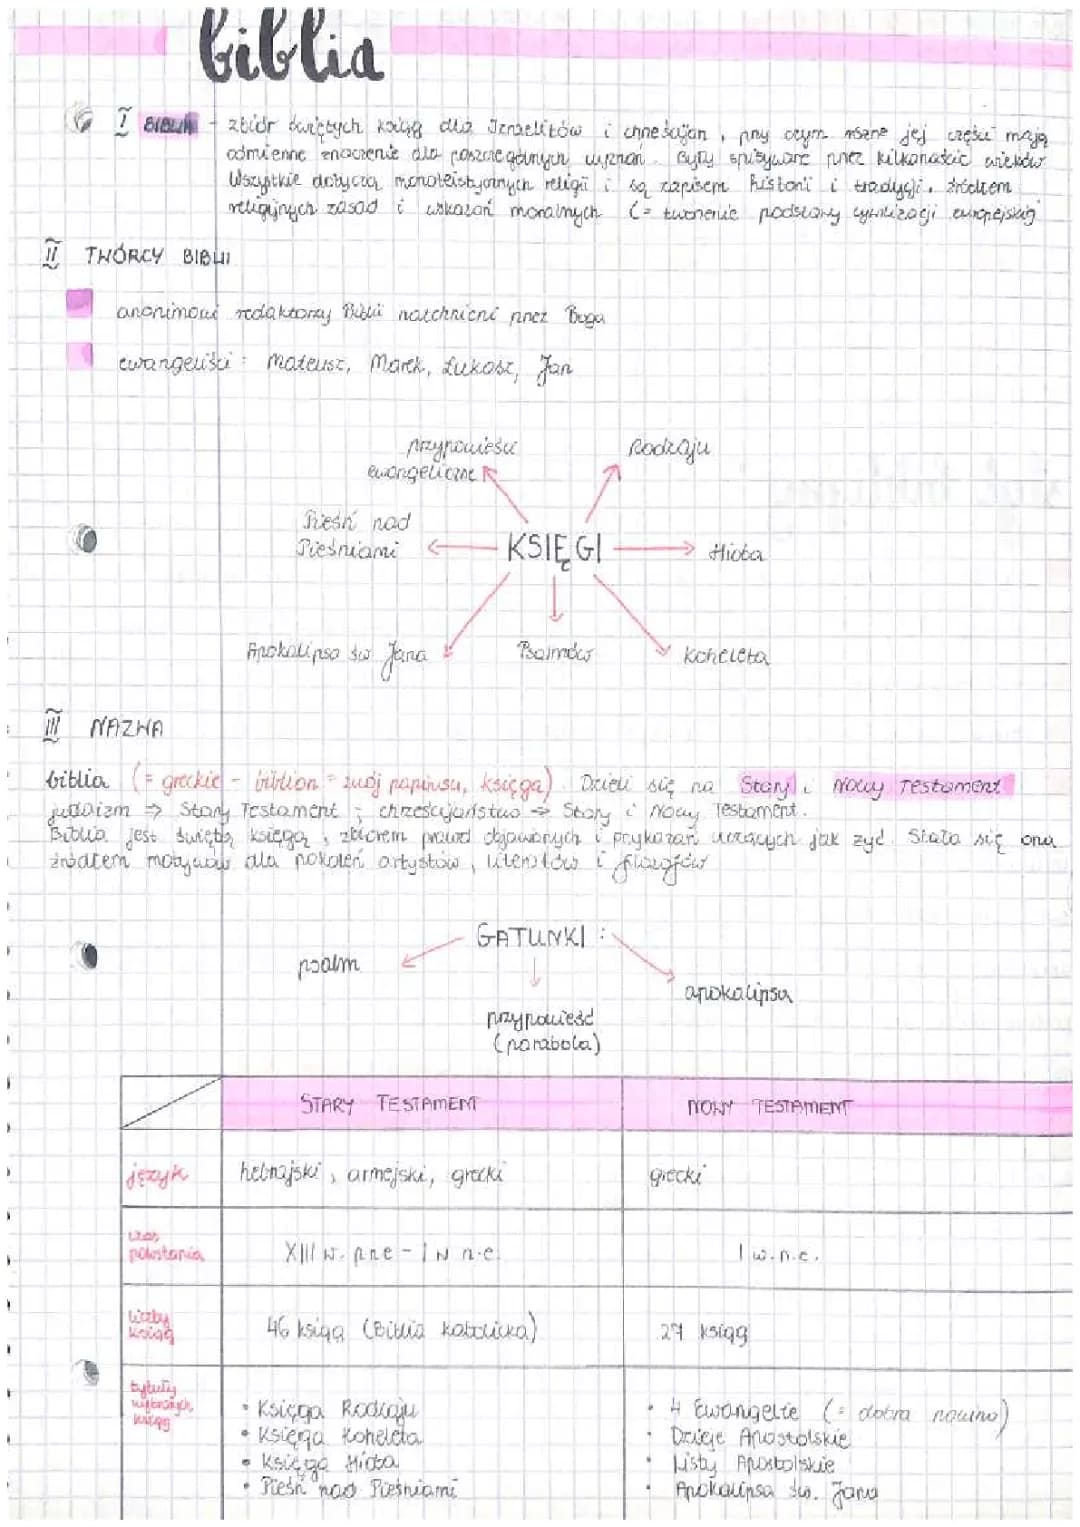 biblia
I BIBLIA - zbiór świętych ksiąg dla Izraelitów i chrześcijan, przy czym różne jej części mają
odmienne znaczenie dla poszczególnych wyznań. Były spisywane przez kilkanaście wieków
Wszystkie dotyczą monoteistycznych religii i są zapisem historii i tradycji, źródłem
religijnych zasad i wskazań moralnych (= tworzenie podstawy cywilizacji europejskiej
II TWÓRCY BIBLII
anonimowi redaktorzy Biblii natchnieni przez Boga
ewangeliści: Mateusz, Marek, Łukasz, Jan
przypowieści Rodzaju
ewangeliczne
Pieśń nad
Pieśniami KSIĘGI Hioba
Apokalipsa św Jana Psalmów Koheleta
III NAZWA
biblia (= greckie - biblion = zwój papirusu, księga) Dzieli się na Stary i Nowy Testament
judaizm => Stary Testament ; chrześcijaństwo => Stary i Nowy Testament.
Biblia jest świętą księgą, zbiorem prawd objawionych i przykazań uczących jak żyć. Stała się ona
źródłem motywów dla pokoleń artystów, literatów i filozofów
GATUNKI:
psalm
apokalipsa
przypowieść
(parabola)
STARY TESTAMENT NOWY TESTAMENT
język hebrajski, armejski, grecki grecki
czas
powstania XIII w. pne - I w n.e. I w.n.e.
liczby
ksiąg 46 ksiąg (Biblia katolicka) 27 ksiąg
tytuły
wybranych
ksiąg
• Księga Rodzaju • 4 Ewangelie (= dobra nowina)
• Księga Koheleta • Dzieje Apostolskie
• Księga Hioba • Listy Apostolskie
• Pieśń nad Pieśniami • Apokalipsa św. Jana